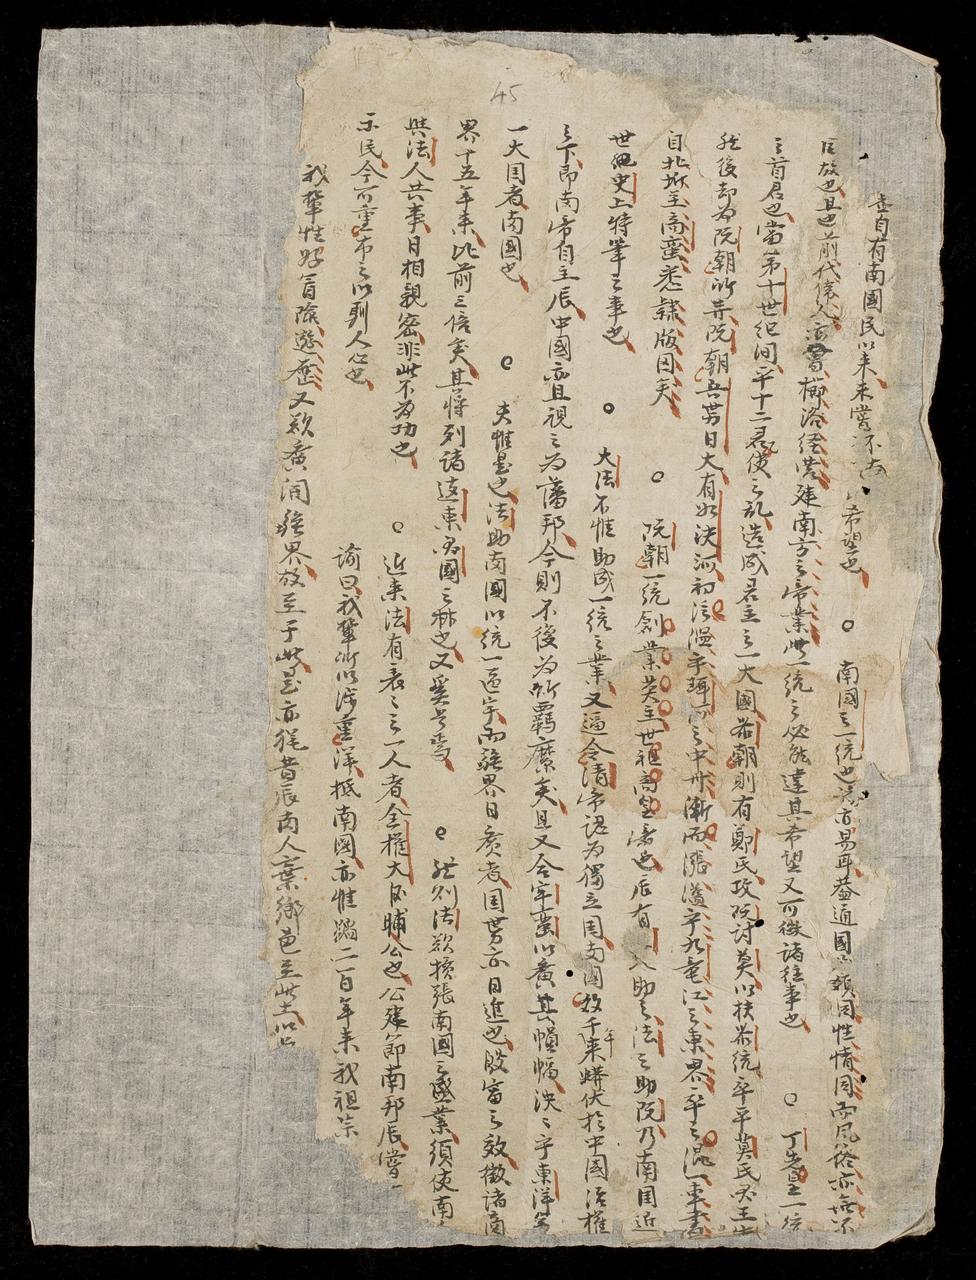 45
查自有南國民以來未嘗不有希望也 ○ 南國之一統也亦易耳蓋通國同性情同而風俗亦無不
同故也且也前代偉人亦嘗櫛沐經營建南方之帝業此一統之必能達其希望又可徵諸往事也 ○ 丁先皇一統
之首君也當第十世紀間平十二君使之亂造成君主之一大國若朝則有鄭氏攻阮討莫以扶黎統卒平莫氏
然後却為阮朝所并阮朝吾势日大有如決河初流溫乎珥河之中舟漸而漲溢乎九竜江之東界卒之混一車書
自北圻至高蛮悉隸版圖矣 ○ 阮朝一統創業英主世祖高皇帝也辰有人助之法之助阮乃南国近
世組史上特筆之事也 ○ 大法不惟助成一統之業又逼令清帝認為獨立国南國故千年來蟒伏於中國治權
之下即南帝自主辰中國亦且視之為藩邦今則不復為所羈縻矣且又合牢蛮以廣其幀幅決決乎東洋第
一大国者南國也 ○ 夫惟是也法助南國以統一區宇而疆界日廣者国势亦日進也殷富之效徵諸商
界十五年來比前三倍矣其將列諸遠東强國之林也又奚疑焉 ○ 然則法欲擴張南國之盛業須使南
與法人共事日相親密非此不為功也 ○ 近來法有表表之一人者全權大臣脯公也公建節南邦辰嘗一
示民今可重布之以馴人心也
諭曰我輩所以涉重洋抵南國亦惟蹈二百年來我祖宗
我輩性好冒險遊歷又欲廣闊疆界故至于此是亦猶昔辰南人棄鄉邑至此土以